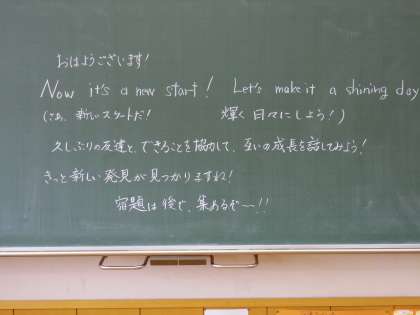 おはようございます!
Now it's a new start! Let's make it a shining day
(さあ、新しいスタートだ! 輝く日々にしよう!)
久しぶりの友達と、できることを協力して、互いの成長を話してみよう!
きっと新しい発見が見つかりますね!
宿題は後で、集めるぞ〜!!